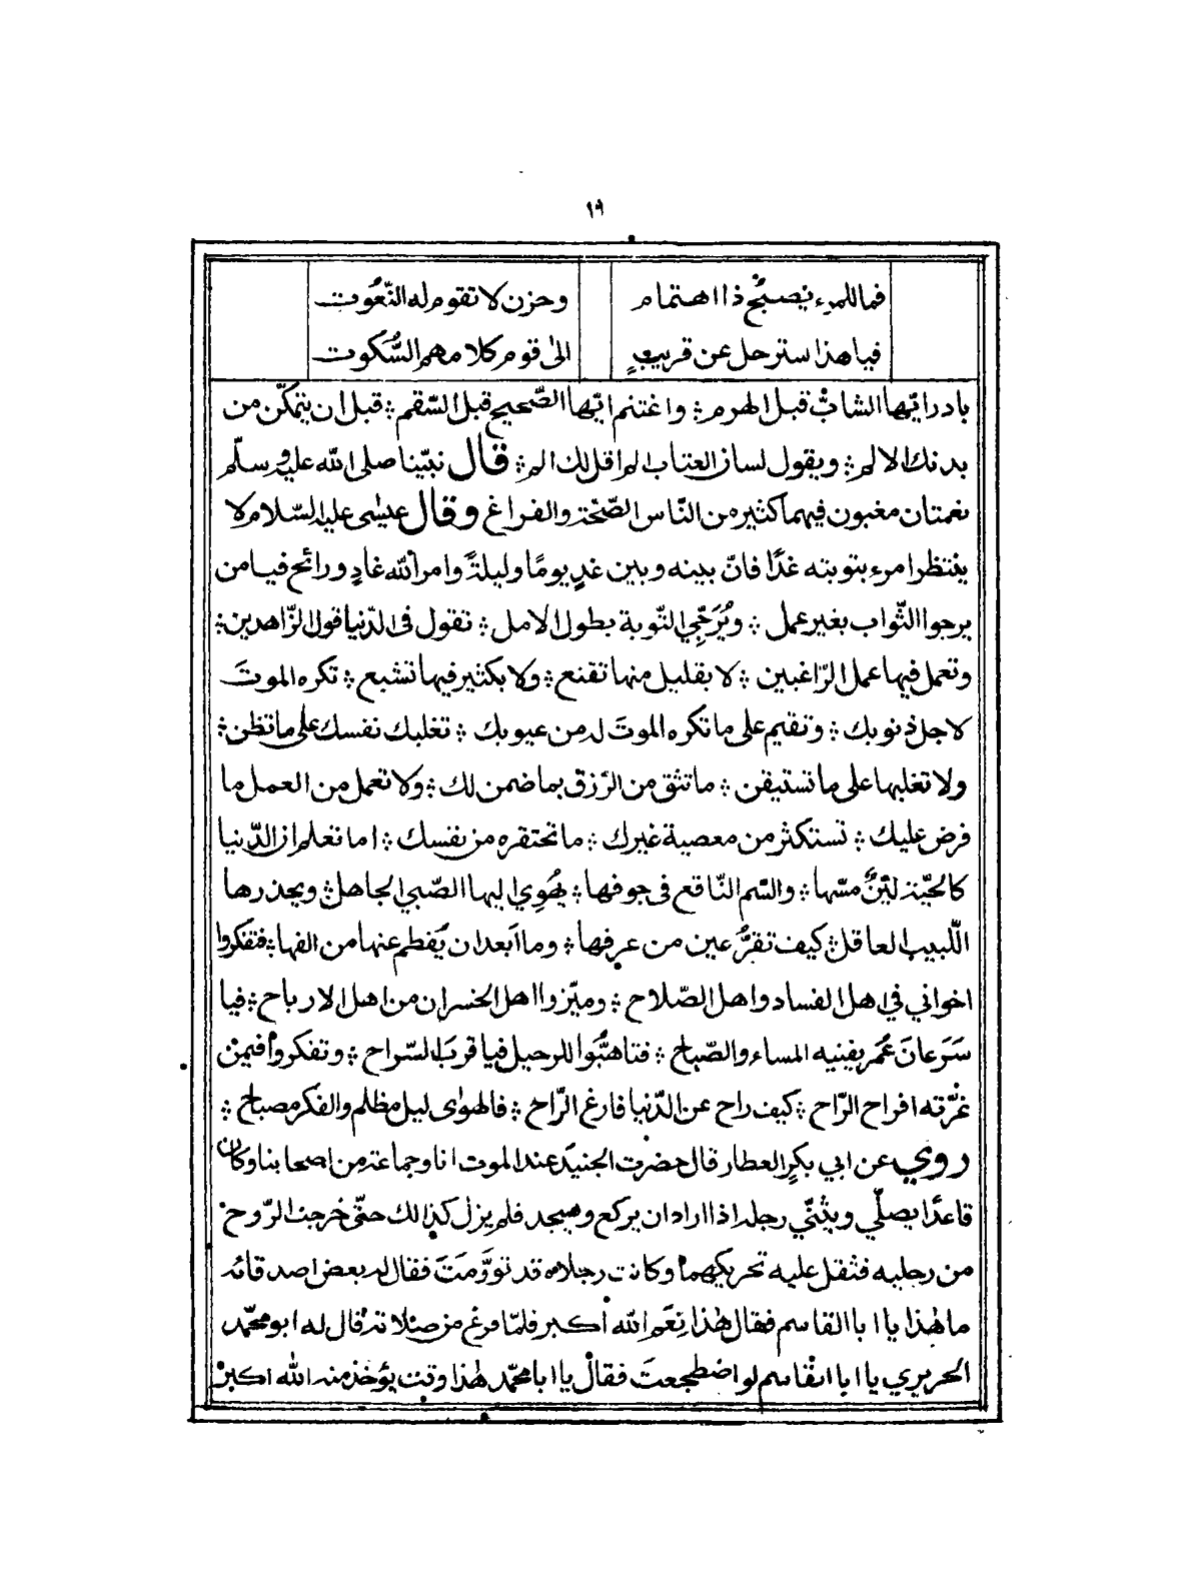 ١٩
فما للمرء يصبح ذا اهتمام وحزن لا تقوم له النّعُوت
فيا هذا سترحل عن قريبٍ الىٰ قوم كلامهم السُّكوت
بادر ايّها الشابّ قبل الهرم ؞ واغتنم ايّها الصّحيح قبل السّقم ؞ قبل ان يتمكّن من
بدنك الالم ؞ ويقول لسان العتاب الم اقل لك الم ؞ قال نبيّنا صلى الله عليه وسلّم
نعمتان مغبون فيهما كثير من النّاس الصّحّة والفراغ وقال عيسٰى عليه السّلام لا
ينتظر امرء بتوبته غدًا فانّ بينه وبين غدٍ يومًا وليلةً وامر الله غادٍ ورائح فيا من
يرجوا الثّواب بغير عمل ؞ ويُرَجّي التّوبة بطول الامل ؞ تقول فى الدّنيا قول الزّاهدين ؞
وتعمل فيها عمل الرّاغبين ؞ لا بقليل منها تقنع ؞ ولا بكثير فيها تشبع ؞ تكره الموتَ
لاجل ذنوبك ؞ وتقيم على ما تكره الموتَ له من عيوبك ؞ تغلبك نفسك على ما تظن ؞
ولا تغلبها على ما تستيقن ؞ ما تثق من الرّزق بما ضمن لك ؞ ولا تعمل من العمل ما
فرض عليك ؞ تستكثر من معصية غيرك ؞ ما تحتقره من نفسك ؞ اما تعلم ان الدّنيا
كالحيّة ليّنٌ مسّها ؞ والسّم النّاقع فى جوفها ؞ يَهْوِي اليها الصّبي الجاهل ؞ ويحذرها
اللّبيب العاقل ؞ كيف تقرُّ عين من عرفها ؞ وما اَبعد ان يُفطم عنها من الفها ؞ فتفكروا
اخواني في اهل الفساد واهل الصّلاح ؞ وميّزوا اهل الخسران من اهل الارباح ؞ فيا
سَرَعانَ عُمر يفنيه المساء والصّباح ؞ فتاهّبُوا للرحيل فيا قربَ السّراح ؞ وتفكروا فيمن
غرّته افراح الرّاح ؞ كيف راح عن الدّنيا فارغ الرّاح ؞ فالهوٰى ليل مظلم والفكر مصباح ؞
روي عن ابي بكرٍ العطار قال حضرت الجنيدَ عند الموت انا وجماعة من اصحابنا وكان
قاعدًا يصلّي ويثنّي رجله اذا اراد ان يركع ويسجد فلم يزل كذالك حتّى خرجت الرّوح
من رجليه فثقل عليه تحريكهما وكانت رجلاه قد تورَّمَتَ فقال له بعض اصدقائه
ما هٰذا يا ابا القاسم فقال هٰذا نِعَم الله اكبر فلمّا فرغ من صلاته قال له ابو محمّد
الحريري يا ابا القاسم لو اضطجعتَ فقال يا ابا محمّد هٰذا وقت يؤخذ منه الله اكبر